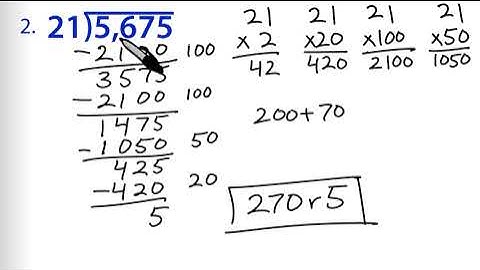 2. 21)5,675
- 2100 100
3575
- 2100 100
1475
- 1050 50
425
- 420 20
5
21 21 21 21
x 2 x20 x100 x50
42 420 2100 1050
200+70
270 r 5